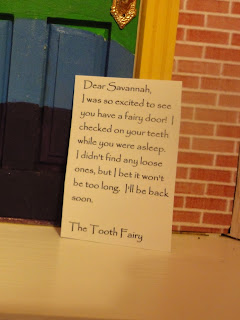 Dear Savannah,
I was so excited to see
you have a fairy door! I
checked on your teeth
while you were asleep.
I didn't find any loose
ones, but I bet it won't
be too long. I'll be back
soon.
The Tooth Fairy